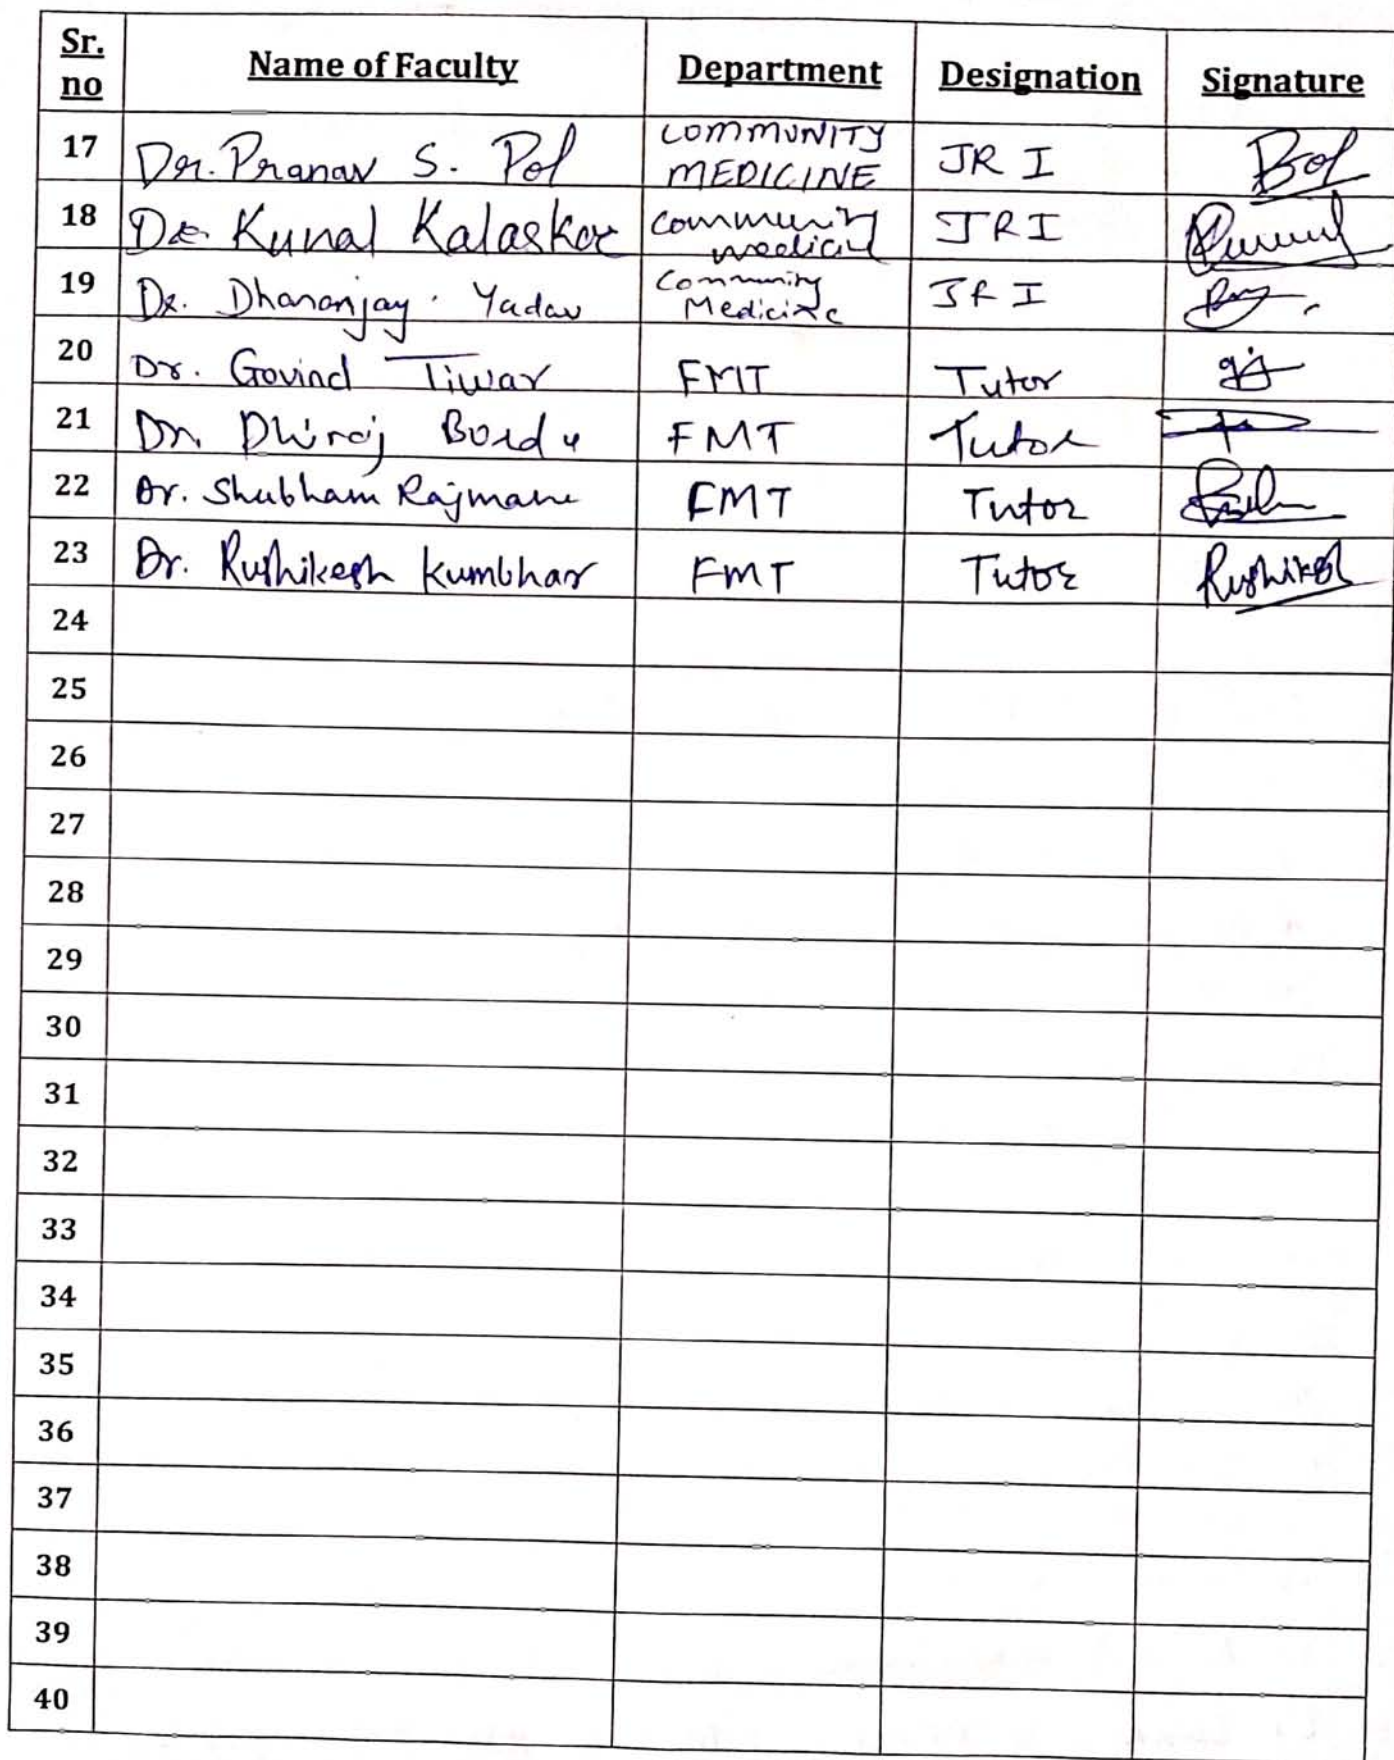 Sr. no Name of Faculty Department Designation Signature
17 Dr. Pranav S. Pol COMMUNITY MEDICINE JR I Pol
18 Dr. Kunal Kalaskar Community medicine JR I
19 Dr. Dhananjay Yadav Community Medicine JR I
20 Dr. Govind Tiwar FMT Tutor
21 Dr. Dhiraj FMT Tutor
22 Dr. Shubham Rajmane FMT Tutor
23 Dr. Rushikesh Kumbhar FMT Tutor Rushikesh
24
25
26
27
28
29
30
31
32
33
34
35
36
37
38
39
40